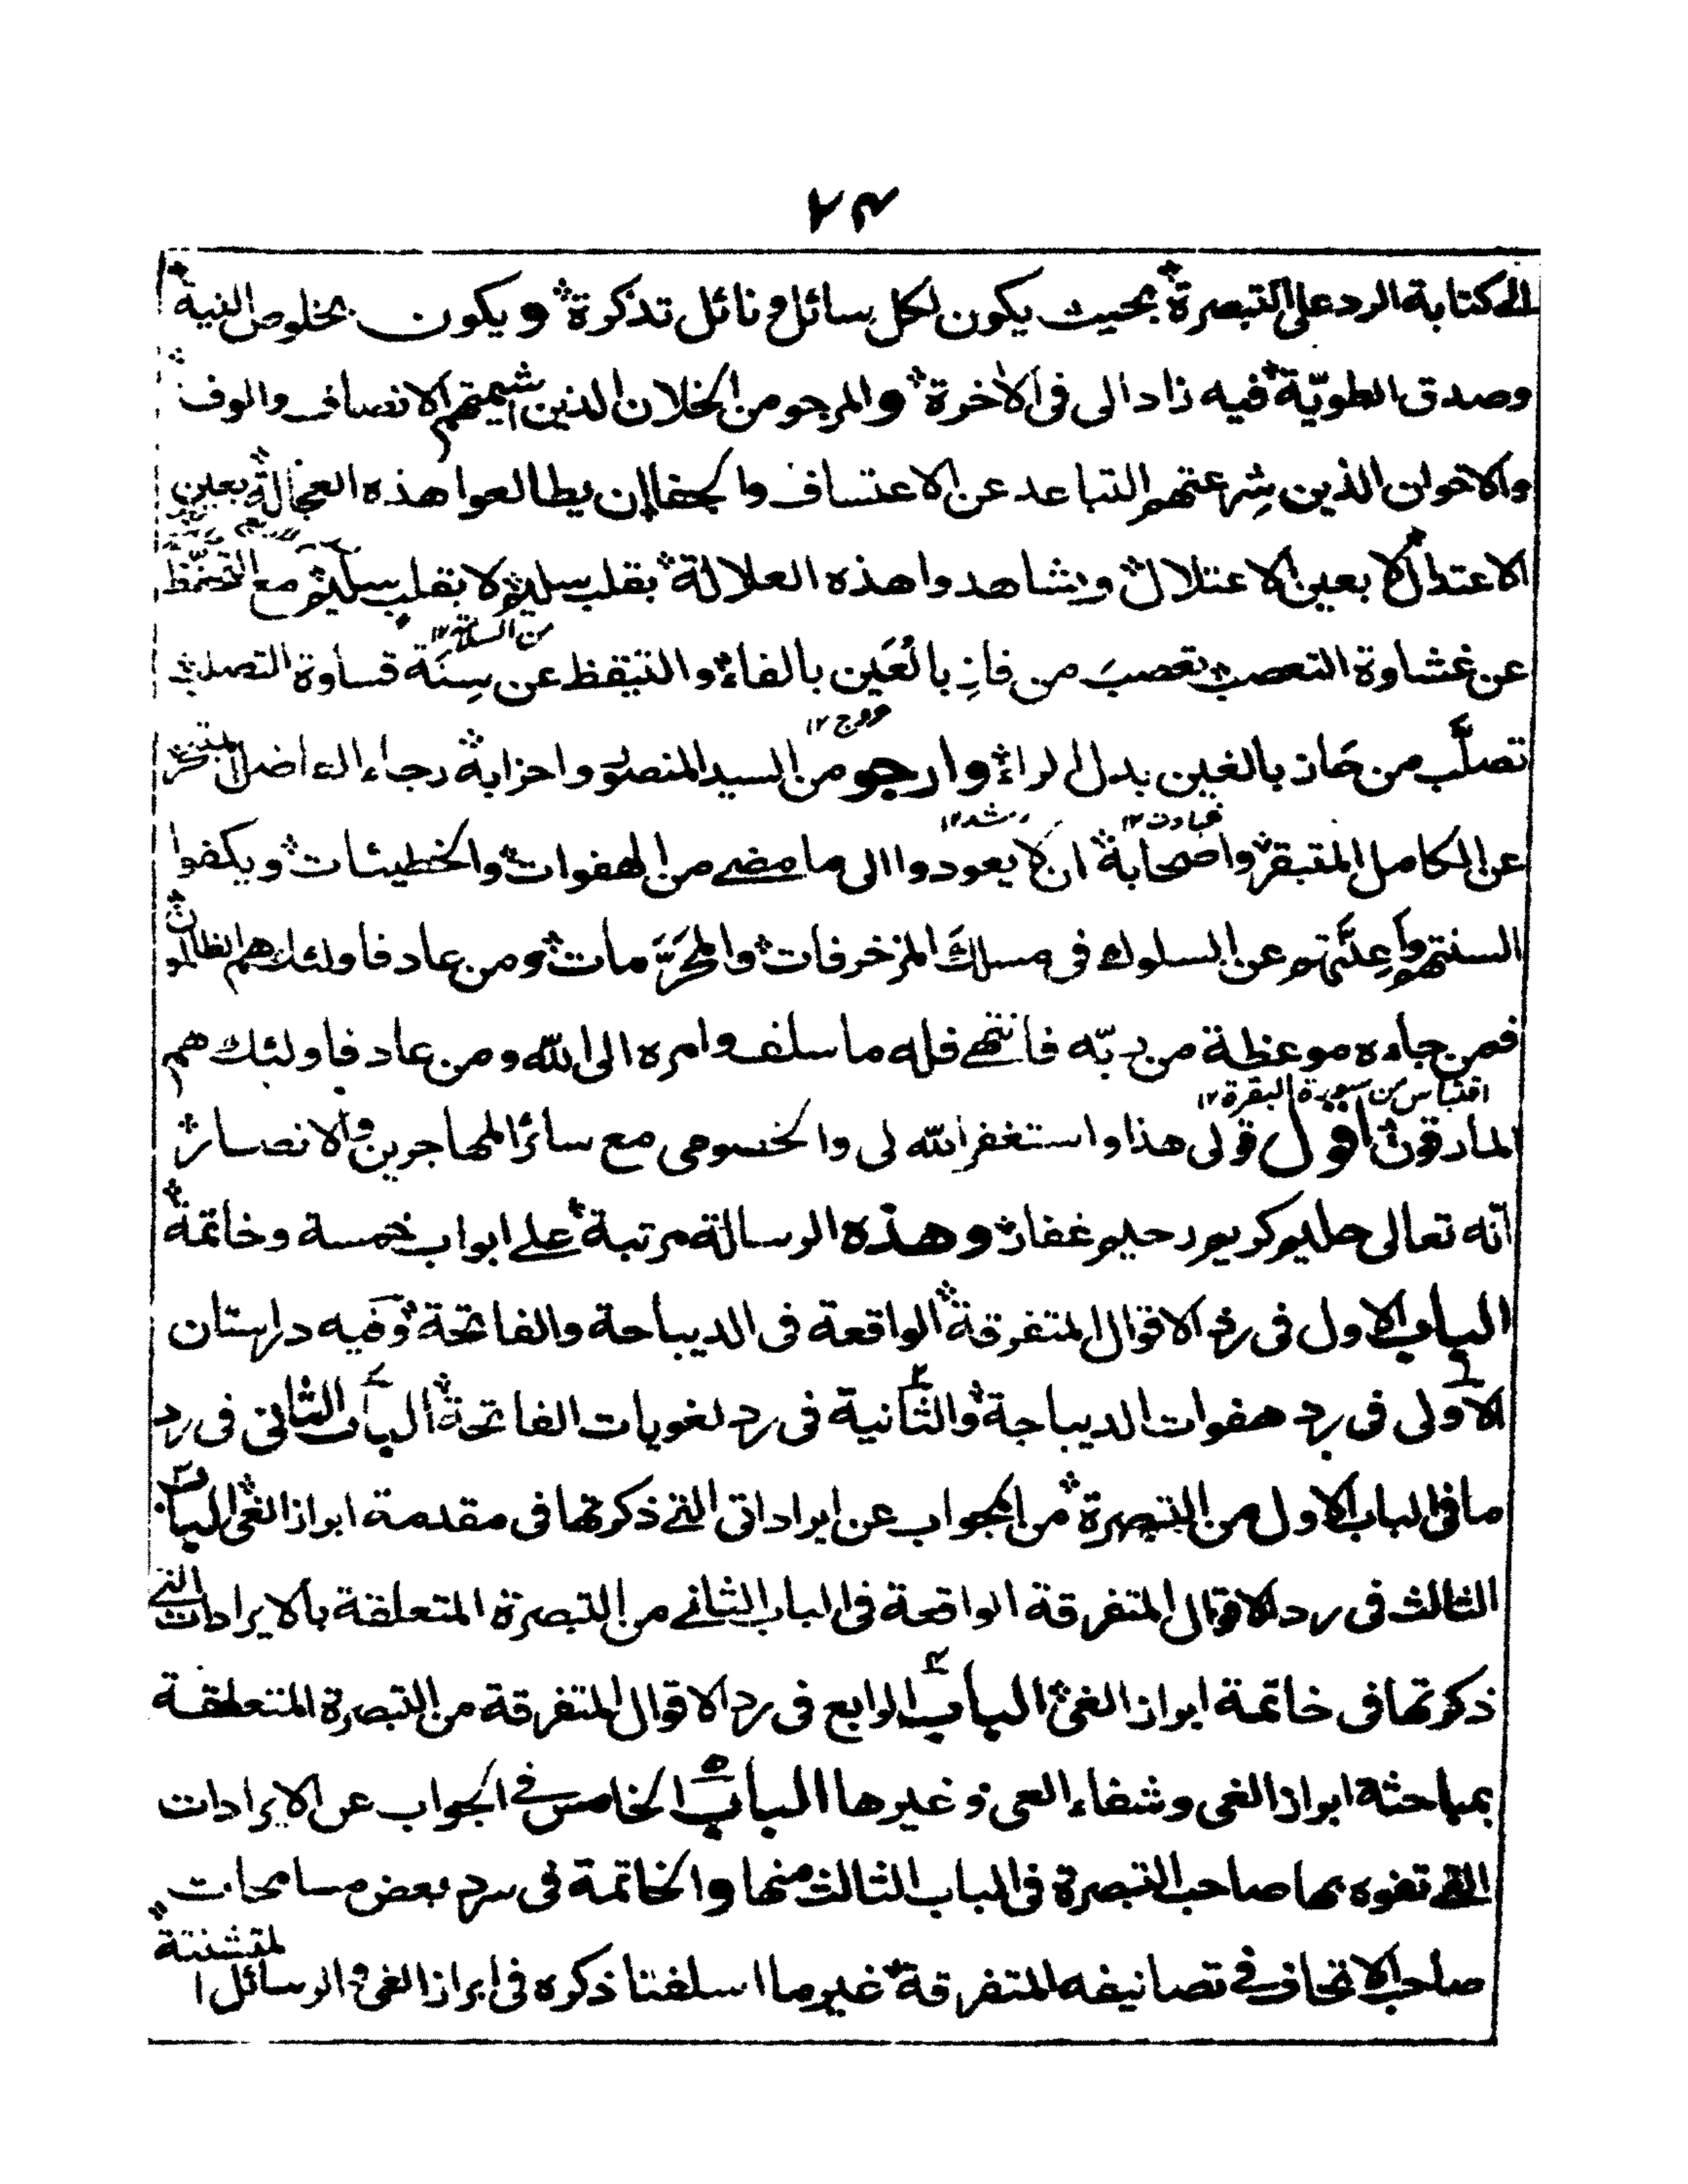 الى كتابة الرد على التبصرة بحيث يكون لكل سائل ونائل تذكرة ويكون بخلوص النية
وصدق الطويّة فيه زادا لى فى الاخرة والمرجو من الخلان الذين شيمتهم الانصاف والوف
والاخوان الذين شرعتهم التباعد عن الاعتساف والجفا ان يطالعوا هذه العجالة بعين
الاعتدال لا بعين الاعتلال ويشاهدوا هذه العلالة بقلب سليم لا بقلب سليم مع التحفظ
عن غشاوة التعصب تعصب من فاز بالعَين بالفاء والتيقظ عن سِنَة قساوة التصلب
تصلّب من حَاز بالغين بدل الراء وارجو من السيد المنصور واحزابه رجاء الفاضل المتبحر
عن الكامل المتبقر واصحابه ان لا يعودوا الى ما مضى من الهفوات والخطيئات ويكفوا
السنتهم واعنّتهم عن السلوك فى مسلك المزخرفات والمحرّمات ومن عاد فاولئك هم الظالمون
فمن جاءه موعظة من ربّه فانتهى فله ما سلف وامره الى الله ومن عاد فاولئك هم
اقتباس من سورة البقرة ١٢
المارقون اقول قولى هذا واستغفر الله لى والخصومى مع سائر المهاجرين والانصار
انّه تعالى حليم كريم رحيم غفار وهذه الرسالة مرتبة على ابواب خمسة وخاتمة
الباب الاول فى رد الاقوال المتفرقة الواقعة فى الديباجة والفاتحة وفيه دراستان
الاولى فى رد هفوات الديباجة والثانية فى رد لغويات الفاتحة الباب الثانى فى رد
ما فى الباب الاول من التبصرة من الجواب عن ايراداتى التى ذكرتها فى مقدمة ابراز الغى الباب
الثالث فى رد الاقوال المتفرقة الواقعة فى الباب الثانى من التبصرة المتعلقة بالايرادات التى
ذكرتها فى خاتمة ابراز الغى الباب الرابع فى رد الاقوال المتفرقة من التبصرة المتعلقة
بمباحثة ابراز الغى وشفاء العى وغيرها الباب الخامس فى الجواب عن الايرادات
التى تفوه بها صاحب التبصرة فى الباب الثالث منها والخاتمة فى سرد بعض مسامحات
صاحب الاتحاف فى تصانيفه المتفرقة غير ما اسلفنا ذكره فى ابراز الغى والرسائل المتشتتة